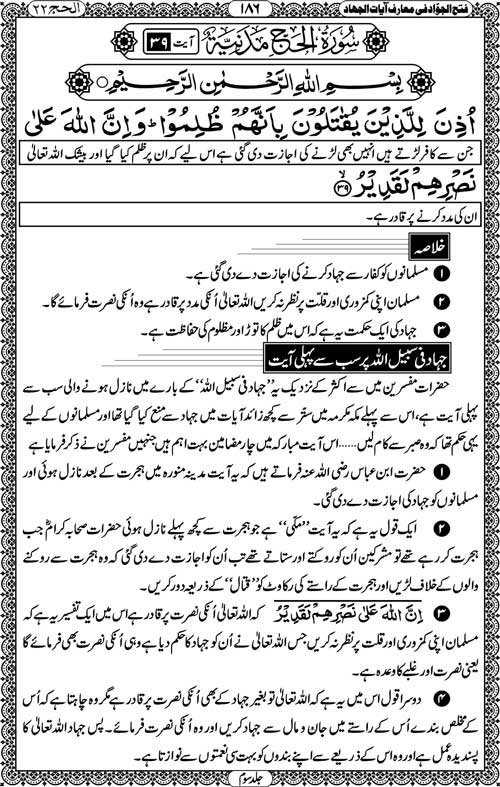 فتح الجوّاد فی معارف آیات الجہاد ۱۸۶ الحج ۲۲
سُورَةُ الْحَجِّ مَدَنِيَّةٌ آیت ۳۹
بِسْمِ اللهِ الرَّحْمٰنِ الرَّحِيْمِ
اُذِنَ لِلَّذِيْنَ يُقٰتَلُوْنَ بِاَنَّهُمْ ظُلِمُوْا ؕ وَاِنَّ اللهَ عَلٰى
جن سے کافر لڑتے ہیں انہیں بھی لڑنے کی اجازت دی گئی ہے اس لیے کہ ان پر ظلم کیا گیا اور بیشک اللہ تعالیٰ
نَصْرِهِمْ لَقَدِيْرُ ۙ۳۹
ان کی مدد کرنے پر قادر ہے۔
خلاصہ
۱ مسلمانوں کو کفار سے جہاد کرنے کی اجازت دے دی گئی ہے۔
۲ مسلمان اپنی کمزوری اور قلّت پر نظر نہ کریں اللہ تعالیٰ اُنکی مدد پر قادر ہے وہ اُنکی نصرت فرمائے گا۔
۳ جہاد کی ایک حکمت یہ ہے کہ اس میں ظلم کا توڑ اور مظلوم کی حفاظت ہے۔
جہاد فی سبیل اللہ پر سب سے پہلی آیت
حضرات مفسرین میں سے اکثر کے نزدیک یہ ”جہاد فی سبیل اللہ“ کے بارے میں نازل ہونے والی سب سے
پہلی آیت ہے، اس سے پہلے مکہ مکرمہ میں ستّر سے کچھ زائد آیات میں جہاد سے منع کیا گیا تھا اور مسلمانوں کے لیے
یہی حکم تھا کہ وہ صبر سے کام لیں......اس آیت مبارکہ میں چار مضامین بہت اہم ہیں جنہیں مفسرین نے ذکر فرمایا ہے
۱ حضرت ابن عباس رضی اللہ عنہ فرماتے ہیں کہ یہ آیت مدینہ منورہ میں ہجرت کے بعد نازل ہوئی اور
مسلمانوں کو جہاد کی اجازت دے دی گئی۔
۲ ایک قول یہ ہے کہ یہ آیت ”مکّی“ ہے جو ہجرت سے کچھ پہلے نازل ہوئی حضرات صحابہ کرامؓ جب
ہجرت کر رہے تھے تو مشرکین اُن کو روکتے اور ستاتے تھے تب اُن کو اجازت دے دی گئی کہ وہ ہجرت سے روکنے
والوں کے خلاف لڑیں اور ہجرت کے راستے کی رکاوٹ کو ”قتال“ کے ذریعہ دور کریں۔
۳ اِنَّ اللهَ عَلٰى نَصْرِهِمْ لَقَدِيْرُ کہ اللہ تعالیٰ اُنکی نصرت پر قادر ہے اس میں ایک تفسیر یہ ہے کہ
مسلمان اپنی کمزوری اور قلت پر نظر نہ کریں جس اللہ تعالیٰ نے اُن کو جہاد کا حکم دیا ہے وہی اُنکی نصرت بھی فرمائے گا
یعنی نصرت اور غلبے کا وعدہ ہے۔
۴ دوسرا قول اس میں یہ ہے کہ اللہ تعالیٰ تو بغیر جہاد کے بھی اُنکی نصرت پر قادر ہے مگر وہ چاہتا ہے کہ اُس
کے مخلص بندے اُس کے راستے میں جان و مال سے جہاد کریں اور وہ اُنکی نصرت فرمائے۔ پس جہاد اللہ تعالیٰ کا
پسندیدہ عمل ہے اور وہ اس کے ذریعے سے اپنے بندوں کو بہت سی نعمتوں سے نوازتا ہے۔
جلد سوم